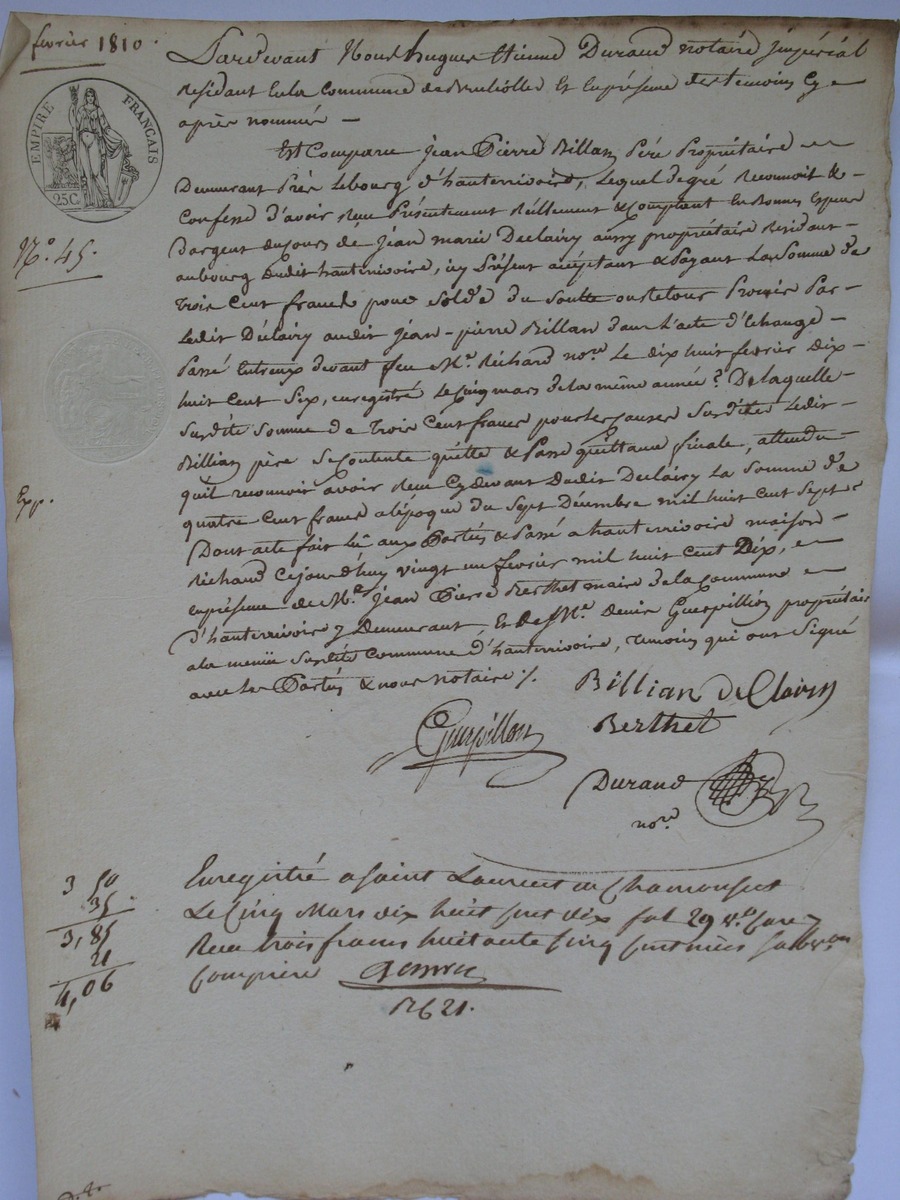 fevrier 1810.
Pardevant Nous hugues Etienne Durand notaire jmpérial
Residant En la Commune de Brulliolles Et En présense des temoins Cy
après nommés
EMPIRE FRANÇAIS
25C
Est Comparu jean Pierre Billian Père Propriétaire
Demeurant Près Lebourg d'hauterrivoire, Lequel de gré Reconnoit &
Confesse d'avoir Reçu Présentement Réellement & Comptant En Bonnes Especes
Dargent du jours de jean marie Declairy aussy propriétaire Residant
N.º 45.
aubourg dudit hauterivoire, icy Présent acceptant & Payant La Somme de
Trois Cent francs pour Solde du Soulte ou Retour Promis Par
Ledit Déclairy audit jean-pierre Billian dans L'acte d'Echange
Passé Entreux devant feu M.e Richard no.re Le dix huit fevrier Dix
huit Cent Six, enregistré Le Cinq mars de la même année? De laquelle
Surdite Somme de Trois Cent francs pour les Causes Surdites Ledit
Billian père Se Contente quitte & Passe quittance finale, attendu
Exp.
quil reconnoir avoir Reçu Cydevant Dudit Declairy La Somme de
quatre Cent francs a lépoque du Sept Décembre mil huit Cent Sept
Dont acte fait Lû aux Partés & Passé a hauterrivoire maison
Richard Cejourd'huy vingt un fevrier mil huit Cent Dix, e
enprésense de M.e Jean Pierre Berthet maire de la Commune
d'hauterrivoire y Demeurant, Et de M.e Denis Guerpillion propriétaire
a la menüe Surdite Commune d'hauterrivoire, Temoins qui ont Signé
avec les Partés & nous notaire ./.
Billian De Clairy
Guerpillon Berthet
Durand
no.re
Enregistré a Saint Laurent de Chamousset
Le Cinq Mars dix huit cent dix fol 29 v.o Case 7
Reçu trois francs huitante Cinq Centimes Subv.on
Comprise
3 50
35
3,85
21
4,06
R 621.